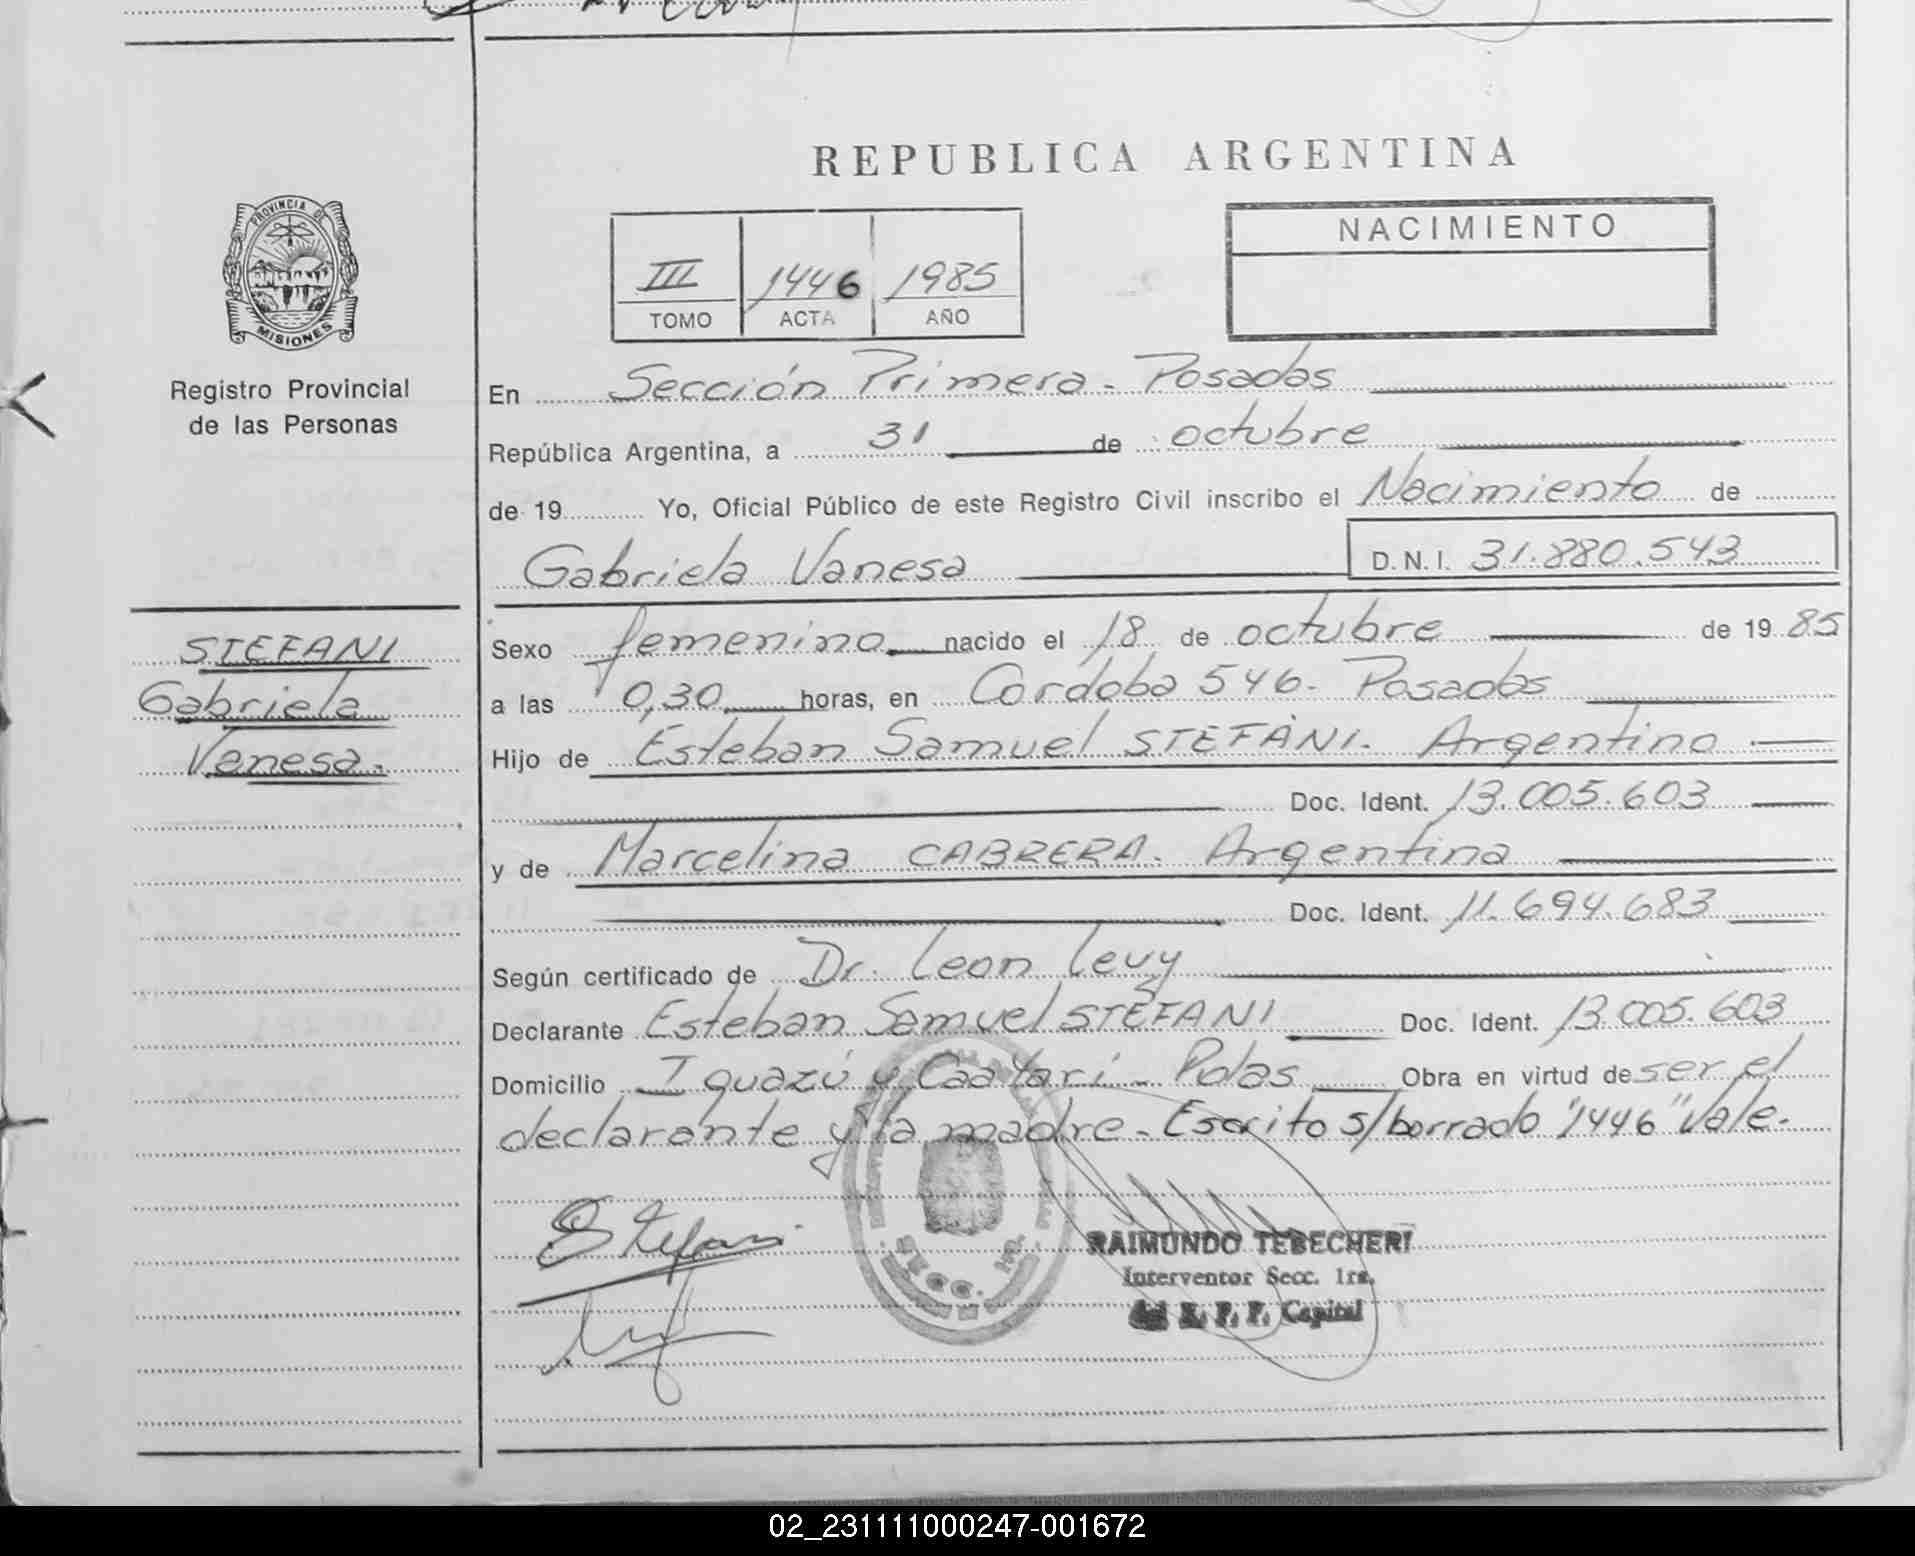 REPUBLICA ARGENTINA
PROVINCIA DE
MISIONES
Registro Provincial
de las Personas
III 1446 1985
TOMO ACTA AÑO
NACIMIENTO
En Sección Primera - Posadas
República Argentina, a 31 de octubre
de 19 Yo, Oficial Público de este Registro Civil inscribo el Nacimiento de
Gabriela Vanesa D.N.I. 31.880.543
STEFANI
Gabriela
Vanesa.
Sexo femenino nacido el 18 de octubre de 19 85
a las 0,30 horas, en Cordoba 546 - Posadas
Hijo de Esteban Samuel STEFANI. Argentino
Doc. Ident. 13.005.603
y de Marcelina CABRERA. Argentina
Doc. Ident. 11.694.683
Según certificado de Dr. Leon Levy
Declarante Esteban Samuel STEFANI Doc. Ident. 13.005.603
Domicilio Iguazú y Caa Yarí - Pdas Obra en virtud de ser el
declarante y la madre - Escrito s/borrado "1446" Vale.
Stefani
RAIMUNDO TEBECHERI
Interventor Secc. 1ra.
del R. P. P. Capital
SECC.
02_231111000247-001672